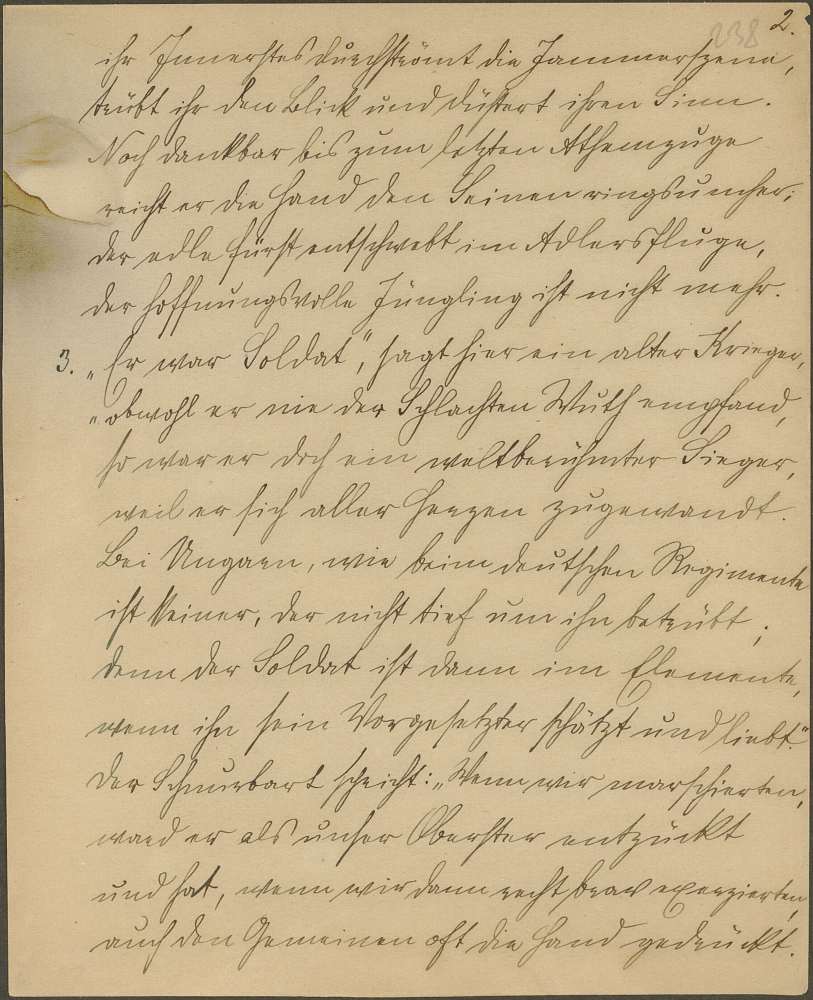 238 2.
ihr Innerstes durchströmt die Jammerszene,
trübt ihr den Blick und düstert ihren Sinn.
Noch dankbar bis zum letzten Athemzuge
reicht er die Hand den Seinen ringsumher;
der edle Fürst entschwebt im Adlersfluge,
der hoffnungsvolle Jüngling ist nicht mehr.
3. „Er war Soldat", sagt hier ein alter Krieger,
„obwohl er nie der Schlachten Wuth empfand,
so war er doch ein weltberühmter Sieger,
weil er sich aller Herzen zugewandt.
Bei Ungarn, wie beim deutschen Regimente
ist keiner, der nicht tief um ihn betrübt;
denn der Soldat ist dann im Elemente,
wenn ihn sein Vorgesetzter schätzt und liebt."
Der Schnurbart spricht: „Wenn wir marschierten,
ward er als unser Oberster entzückt
und hat, wenn wir dann recht brav exerzierten,
auch den Gemeinen oft die Hand gedrückt.